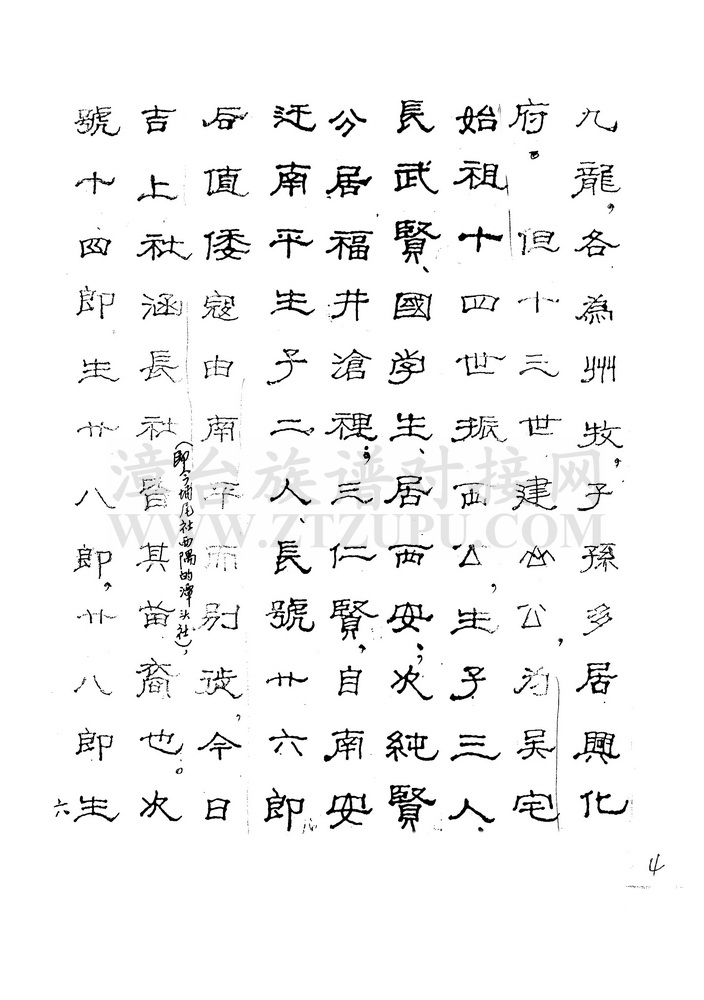 九龍，各為州牧，子孫多居興化
府。但十三世建山公，为吴宅
始祖十四世振西公，生子三人、
長武賢、國学生、居西安；次純賢
分居福井滄裡；三仁賢，自南安
迁南平生子二人、長號廿六郎
后值倭寇由南平而别徙，今日
(即今埔尾社西隅的潭头社)，
吉上社涵長社皆其苗裔也。次
號十四郎生廿八郎，廿八郎生
六
4
漳台族谱对接网
WWW.ZTZUPU.COM